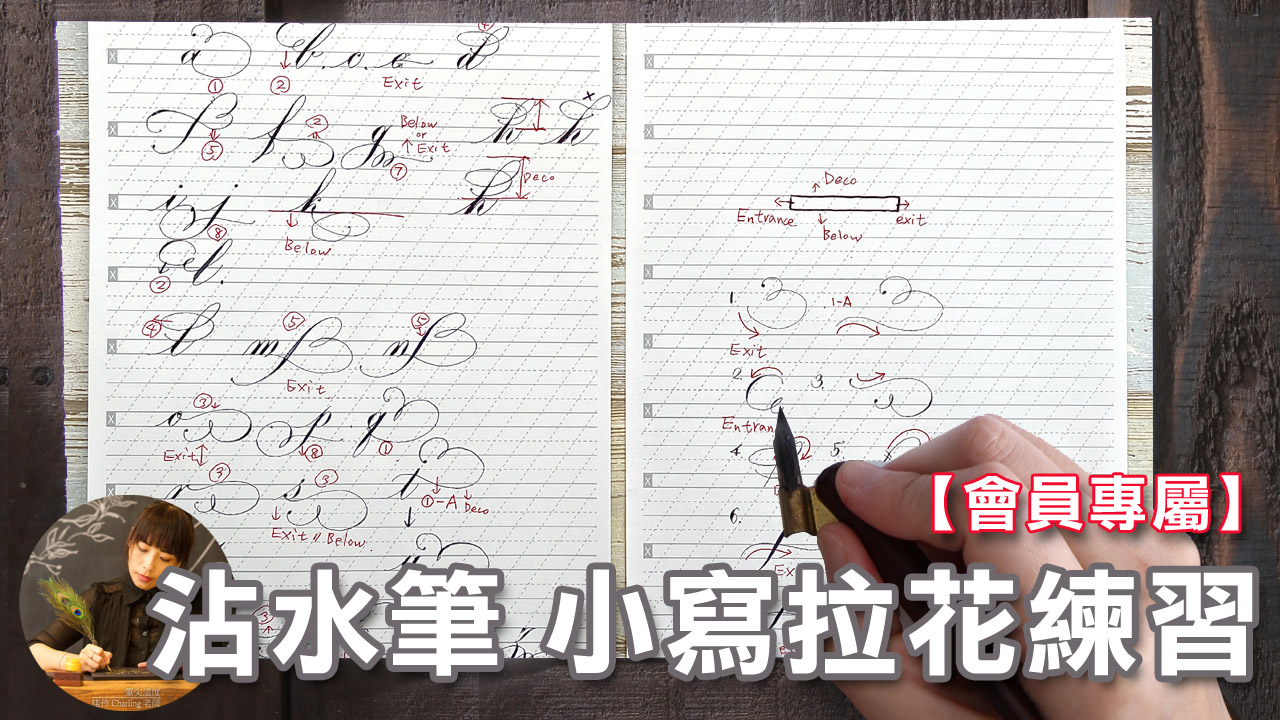 a b. c. e d
① ② Exit ④
f f g h h
⑤ ② Below
or
Exit
⑦
i j k h
⑧ Below Deco
l.
②
④ l m ⑤ n ⑤
Exit
o ③ p ⑧ q ①
Exit
r ③ s ③ t ①-A Deco
Exit // Below
③
X
Deco
Entrance exit
Below
1. 1-A
Exit
2. 3.
4. 5.
6.
【會員專屬】
沾水筆 小寫拉花練習
筆尖溫度
Charling 老師